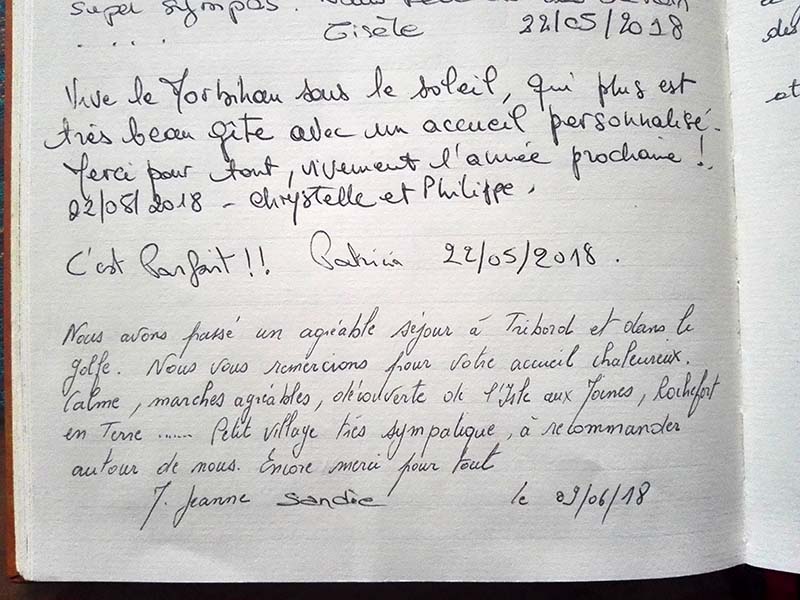 super sympas.
. . . . Gisèle 22/05/2018
Vive le Morbihan sous le soleil, qui plus est
très beau gîte avec un accueil personnalisé.
Merci pour tout, vivement l'année prochaine !
22/08/2018 - Chrystelle et Philippe.
C'est Parfait !! Patricia 22/05/2018.
Nous avons passé un agréable séjour à Tribord et dans le
golfe. Nous vous remercions pour votre accueil chaleureux.
Calme, marches agréables, découverte de l'Isle aux Moines, Rochefort
en Terre ...... Petit village très sympatique, à recommander
autour de nous. Encore merci pour tout
J. Jeanne Sandie le 09/06/18
des
et